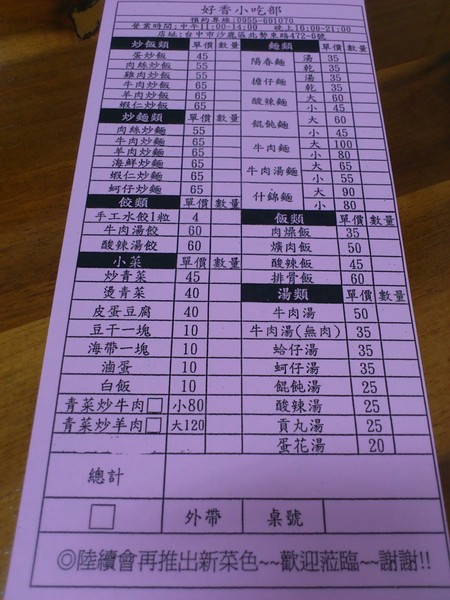 好香小吃部
預約專線:0955-691070
營業時間:中午11:00-14:00 晚上16:00-21:00
店址:台中市沙鹿區北勢東路472-6號
炒飯類 單價 數量
蛋炒飯 45
肉絲炒飯 55
雞肉炒飯 55
牛肉炒飯 65
羊肉炒飯 65
蝦仁炒飯 65
炒麵類 單價 數量
肉絲炒麵 55
牛肉炒麵 65
羊肉炒麵 65
海鮮炒麵 65
蝦仁炒麵 65
蚵仔炒麵 65
餃類 單價 數量
手工水餃1粒 4
牛肉湯餃 60
酸辣湯餃 60
小菜 單價 數量
炒青菜 45
燙青菜 40
皮蛋豆腐 40
豆干一塊 10
海帶一塊 10
滷蛋 10
白飯 10
青菜炒牛肉□ 小80
青菜炒羊肉□ 大120
麵類 單價 數量
陽春麵 湯 35
乾 35
擔仔麵 湯 35
乾 35
酸辣麵 大 60
小 45
餛飩麵 大 60
小 45
牛肉麵 大 100
小 80
牛肉湯麵 大 65
小 55
什錦麵 大 90
小 80
飯類 單價 數量
肉燥飯 35
爌肉飯 50
酸辣飯 45
排骨飯 60
湯類 單價 數量
牛肉湯 50
牛肉湯(無肉) 35
蛤仔湯 35
蚵仔湯 35
餛飩湯 25
酸辣湯 25
貢丸湯 25
蛋花湯 20
總計
□ 外帶 桌號
◎陸續會再推出新菜色~~歡迎蒞臨~~謝謝!!